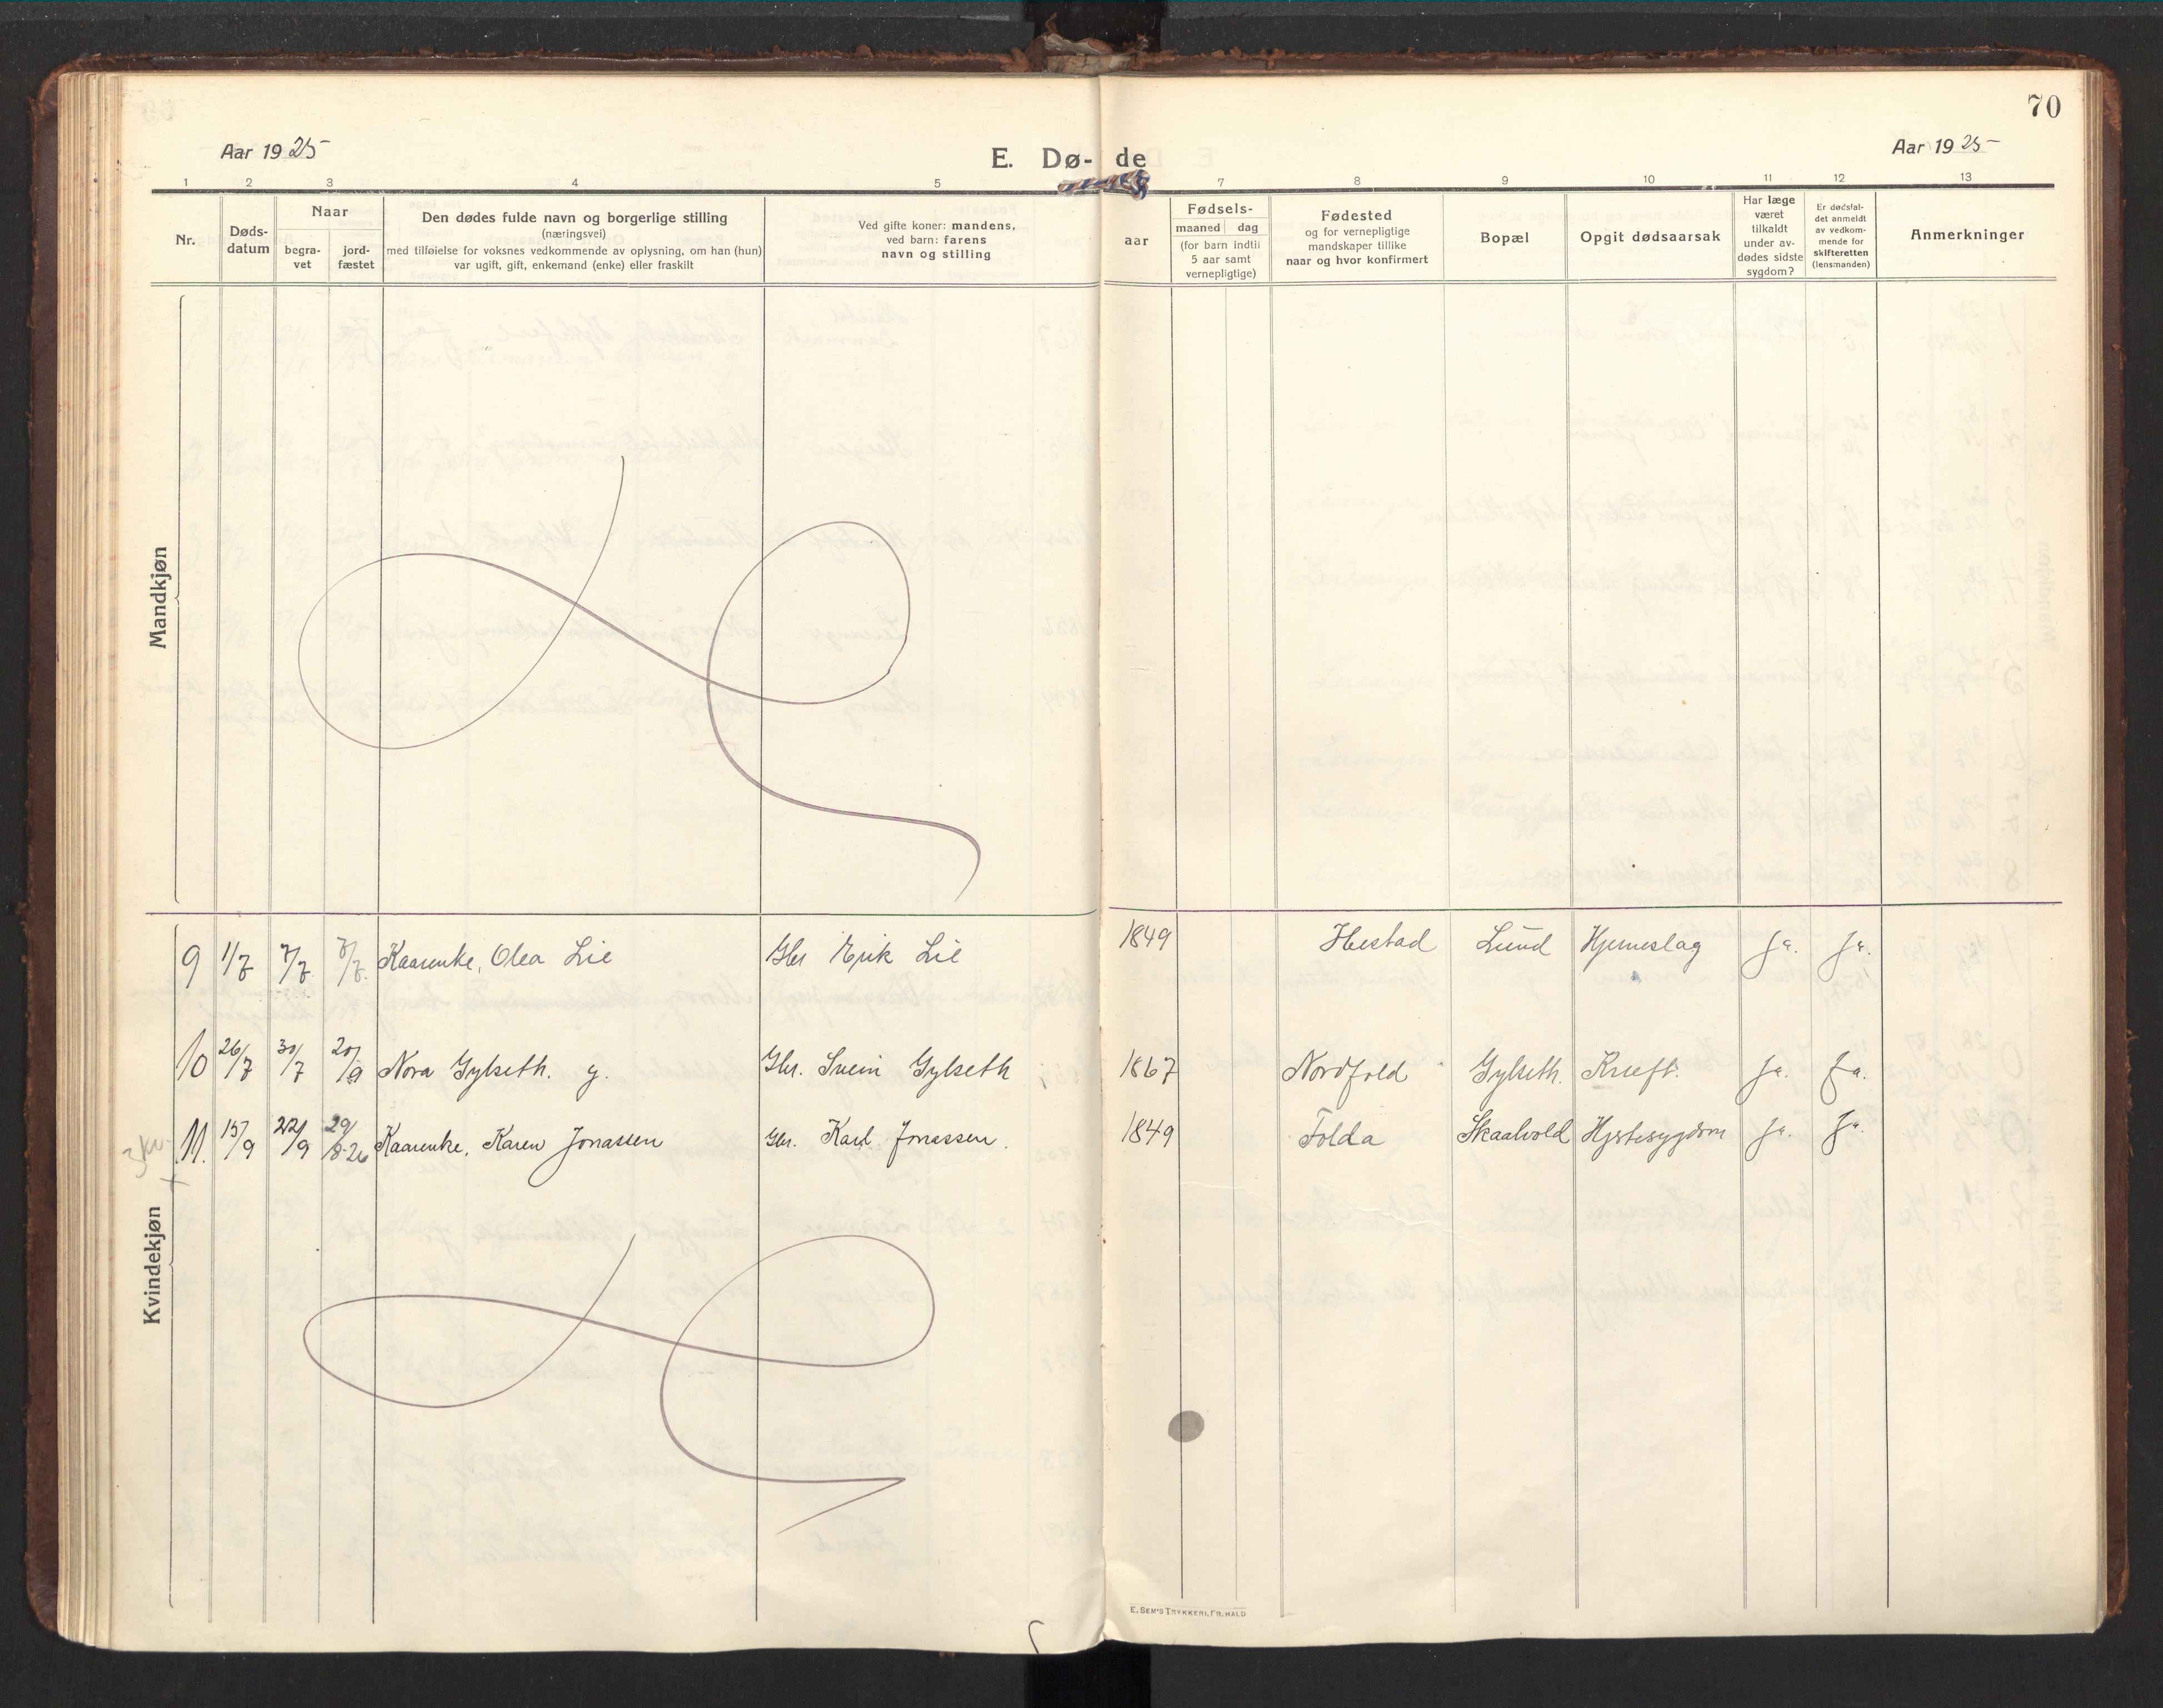 70
Aar 1925
E. Dø- de
Aar 1925
1 2 3 4 5 7 8 9 10 11 12 13
Nr.
Døds-
datum
Naar
begra-
vet
jord-
fæstet
Den dødes fulde navn og borgerlige stilling
(næringsvei)
med tilføielse for voksnes vedkommende av oplysning, om han (hun)
var ugift, gift, enkemand (enke) eller fraskilt
Ved gifte koner: mandens,
ved barn: farens
navn og stilling
aar
Fødsels-
maaned dag
(for barn indtil
5 aar samt
vernepligtige)
Fødested
og for vernepligtige
mandskaper tillike
naar og hvor konfirmert
Bopæl
Opgit dødsaarsak
Har læge
været
tilkaldt
under av-
dødes sidste
sygdom?
Er dødsfal-
det anmeldt
av vedkom-
mende for
skifteretten
(lensmanden)
Anmerkninger
Mandkjøn
9 1/7 7/7 7/7. Kaarenke, Olea Lie Gbr Erik Lie 1849 Hestad Lund Hjerneslag ja. ja.
10 26/7 30/7 20/9 Nora Gylseth. g. Gbr. Svein Gylseth 1867 Nordfold Gylseth. Kreft. ja. ja.
11. 15/9 22/9 29/8-26 Kaarenke, Karen Jonassen Gbr. Karl Jonassen. 1849 Folda Skaalvold Hjertesygdom ja. ja.
Kvindekjøn
E. SEM'S TRYKKERI, FR.HALD